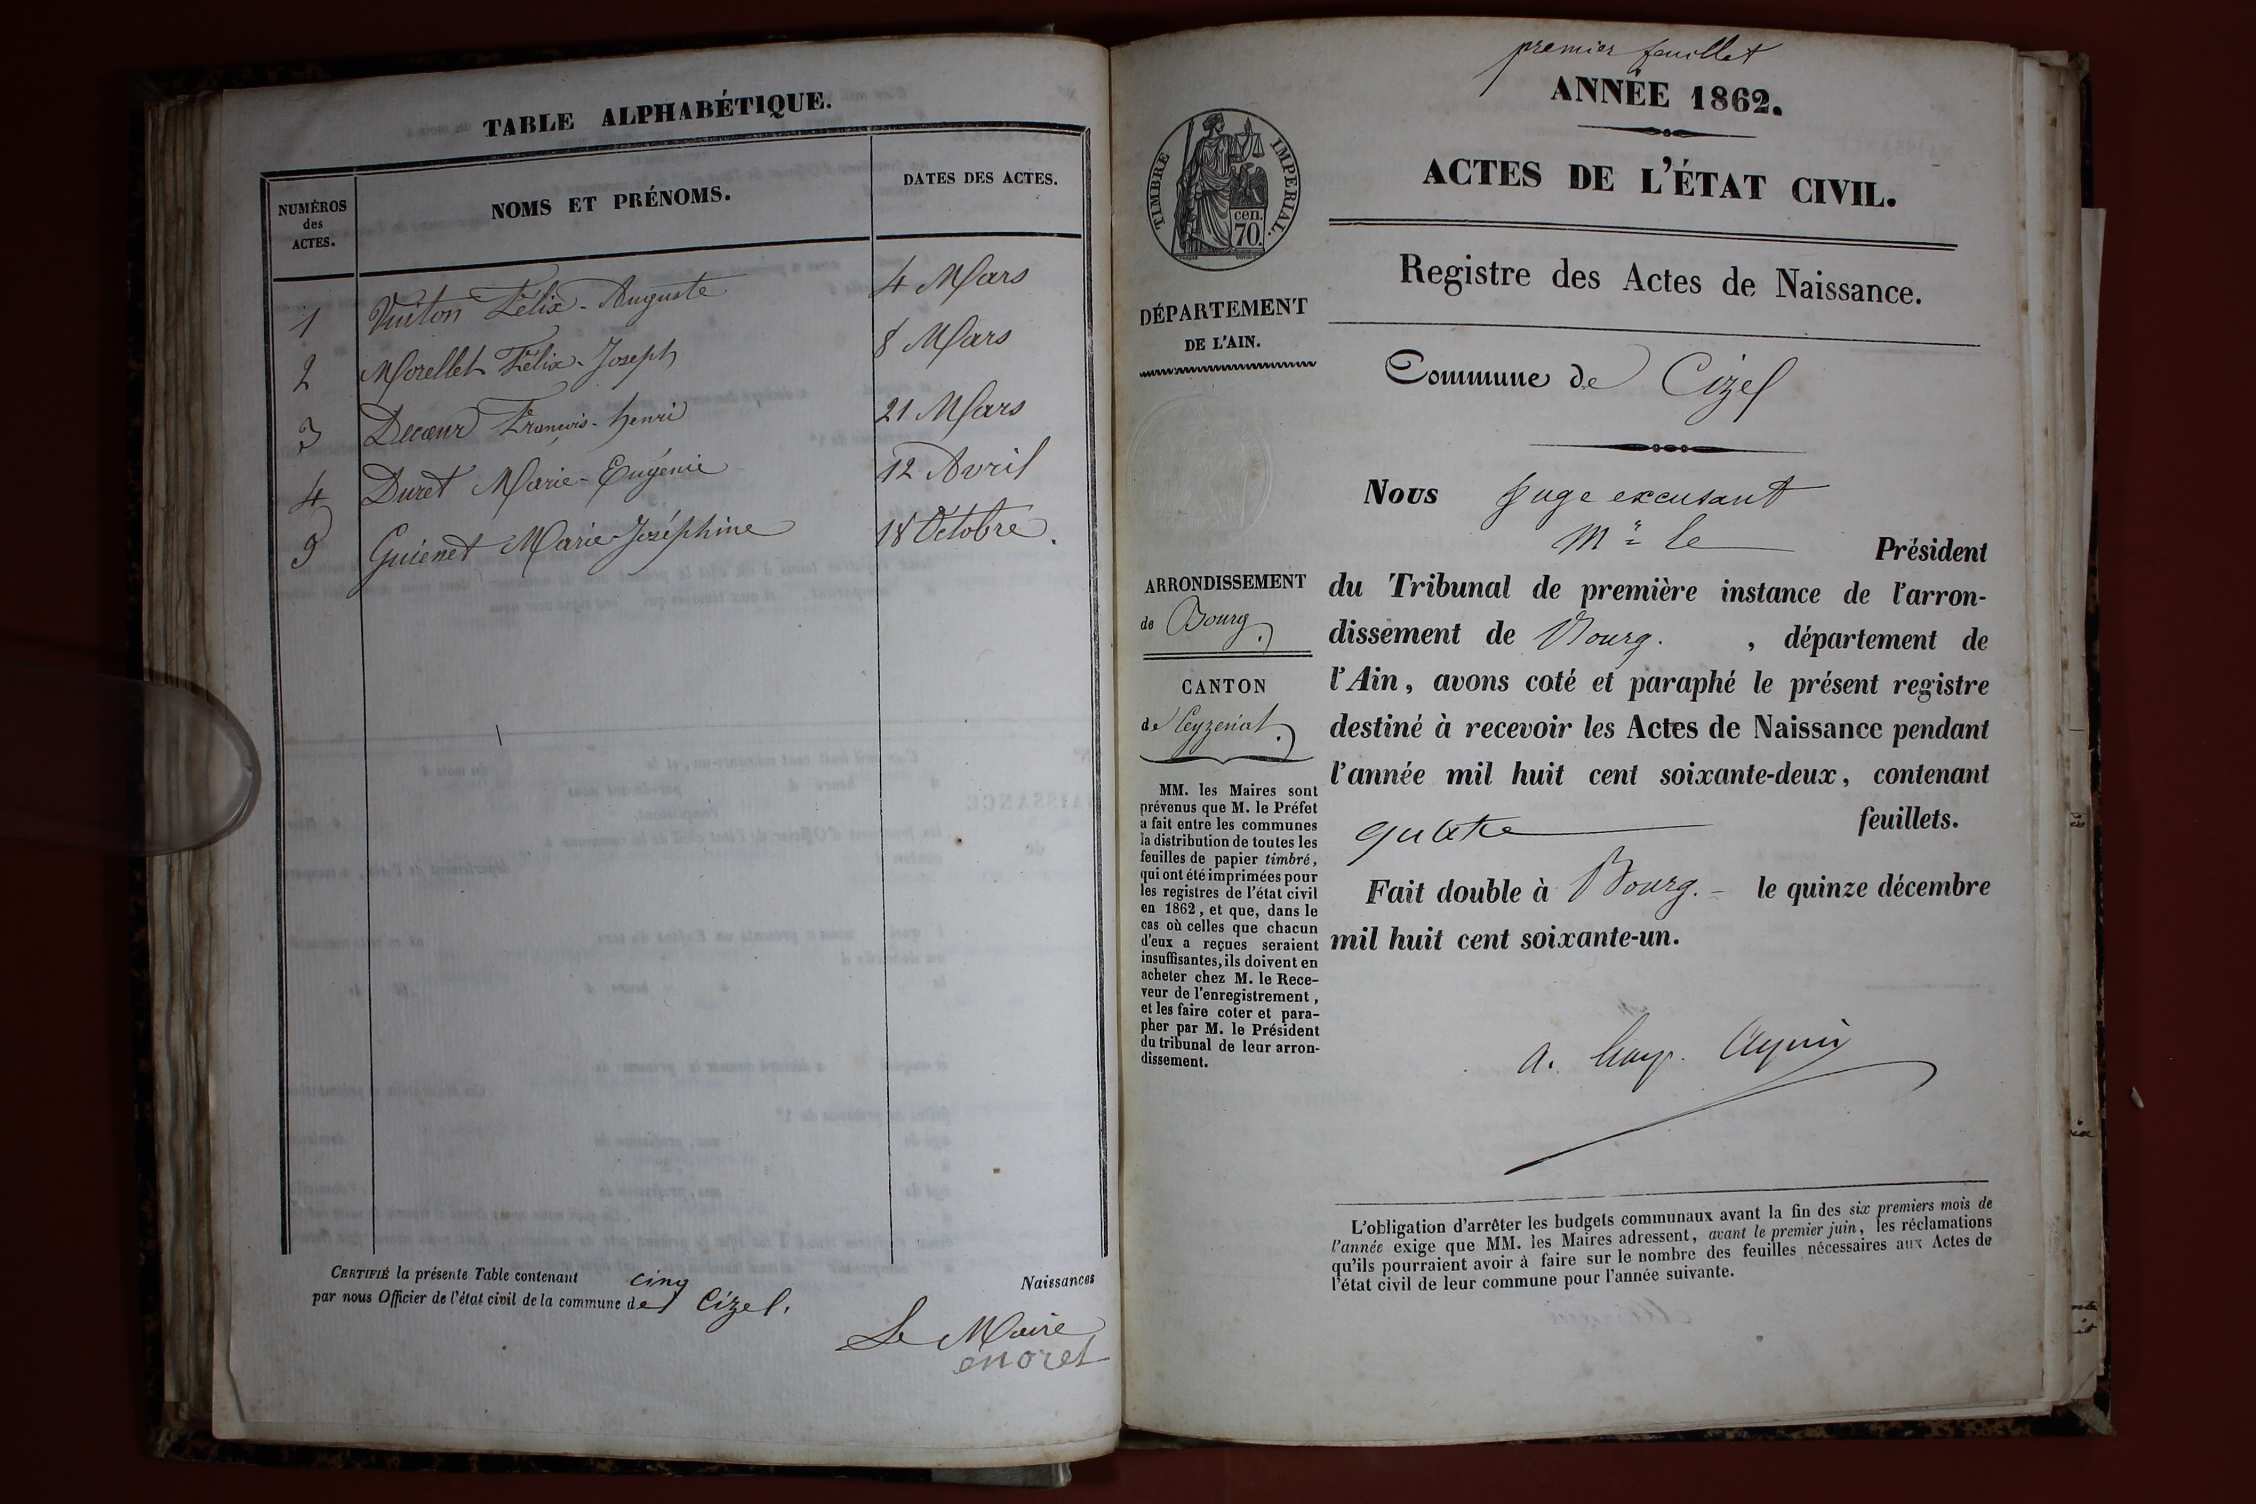 TABLE ALPHABÉTIQUE.
NUMÉROS
des
ACTES.
NOMS ET PRÉNOMS.
DATES DES ACTES.
1 Vuiton Félix-Auguste 4 Mars
2 Morellet Félix-Joseph 8 Mars
3 Decœur François-henri 21 Mars
4 Duret Marie-Eugénie 12 Avril
5 Guienet Marie Joséphine 18 Octobre.
CERTIFIÉ la présente Table contenant cinq Naissances
par nous Officier de l'état civil de la commune de Cizel.
Le Maire
premier feuillet
ANNÉE 1862.
ACTES DE L'ÉTAT CIVIL.
Registre des Actes de Naissance.
TIMBRE IMPERIAL.
cen.
70.
DÉPARTEMENT
DE L'AIN.
Commune de Cizel
Nous Juge excusant
Mr le Président
du Tribunal de première instance de l'arron-
dissement de Bourg. , département de
l'Ain, avons coté et paraphé le présent registre
destiné à recevoir les Actes de Naissance pendant
l'année mil huit cent soixante-deux, contenant
quatre feuillets.
Fait double à Bourg. le quinze décembre
mil huit cent soixante-un.
ARRONDISSEMENT
de Bourg.
CANTON
de Ceyzeriat.
MM. les Maires sont
prévenus que M. le Préfet
a fait entre les communes
la distribution de toutes les
feuilles de papier timbré,
qui ont été imprimées pour
les registres de l'état civil
en 1862, et que, dans le
cas où celles que chacun
d'eux a reçues seraient
insuffisantes, ils doivent en
acheter chez M. le Rece-
veur de l'enregistrement,
et les faire coter et para-
pher par M. le Président
du tribunal de leur arron-
dissement.
L'obligation d'arrêter les budgets communaux avant la fin des six premiers mois de
l'année exige que MM. les Maires adressent, avant le premier juin, les réclamations
qu'ils pourraient avoir à faire sur le nombre des feuilles nécessaires aux Actes de
l'état civil de leur commune pour l'année suivante.